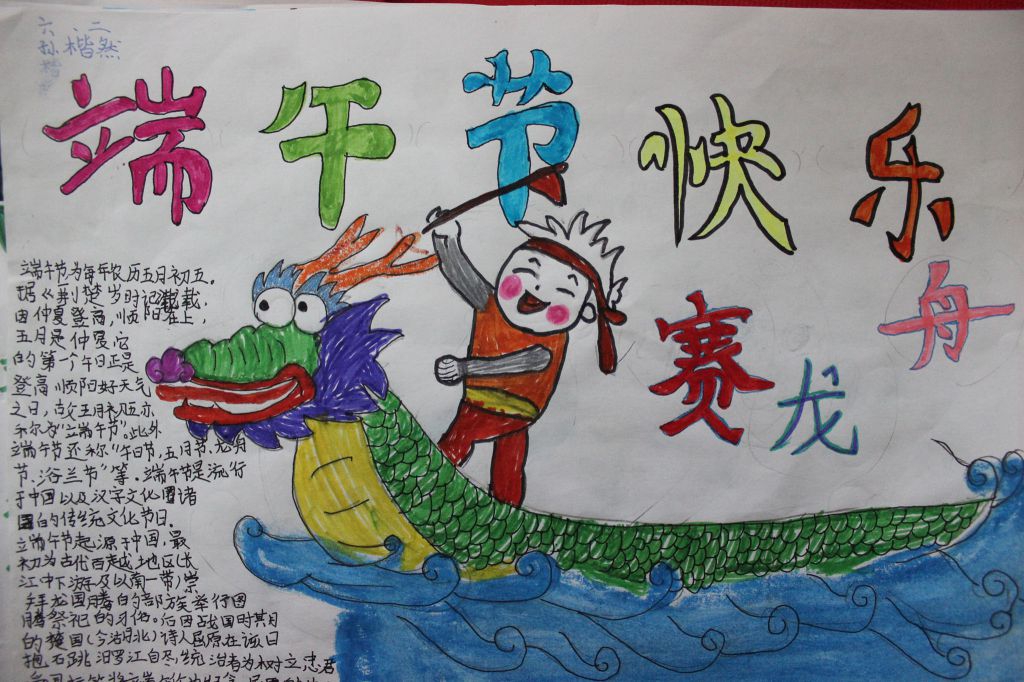 六、二
孙楷然
端午节快乐
赛龙舟
端午节为每年农历五月初五。
据《荆楚岁时记》载,
因仲夏登高,顺阳在上,
五月是仲夏,它
的第一个午日正是
登高顺阳好天气
之日,故五月初五亦
称为"端午节"。此外
端午节还称"午日节,五月节、龙舟
节、浴兰节"等。端午节是流行
于中国以及汉字文化圈诸
国的传统文化节日。
端午节起源于中国,最
初为古代百越地区(长
江中下游及以南一带)崇
拜龙图腾的部族举行图
腾祭祀的习俗。后因战国时期
的楚国(今湖北)诗人屈原在该日
抱石跳汨罗江自尽,统治者为树立忠君